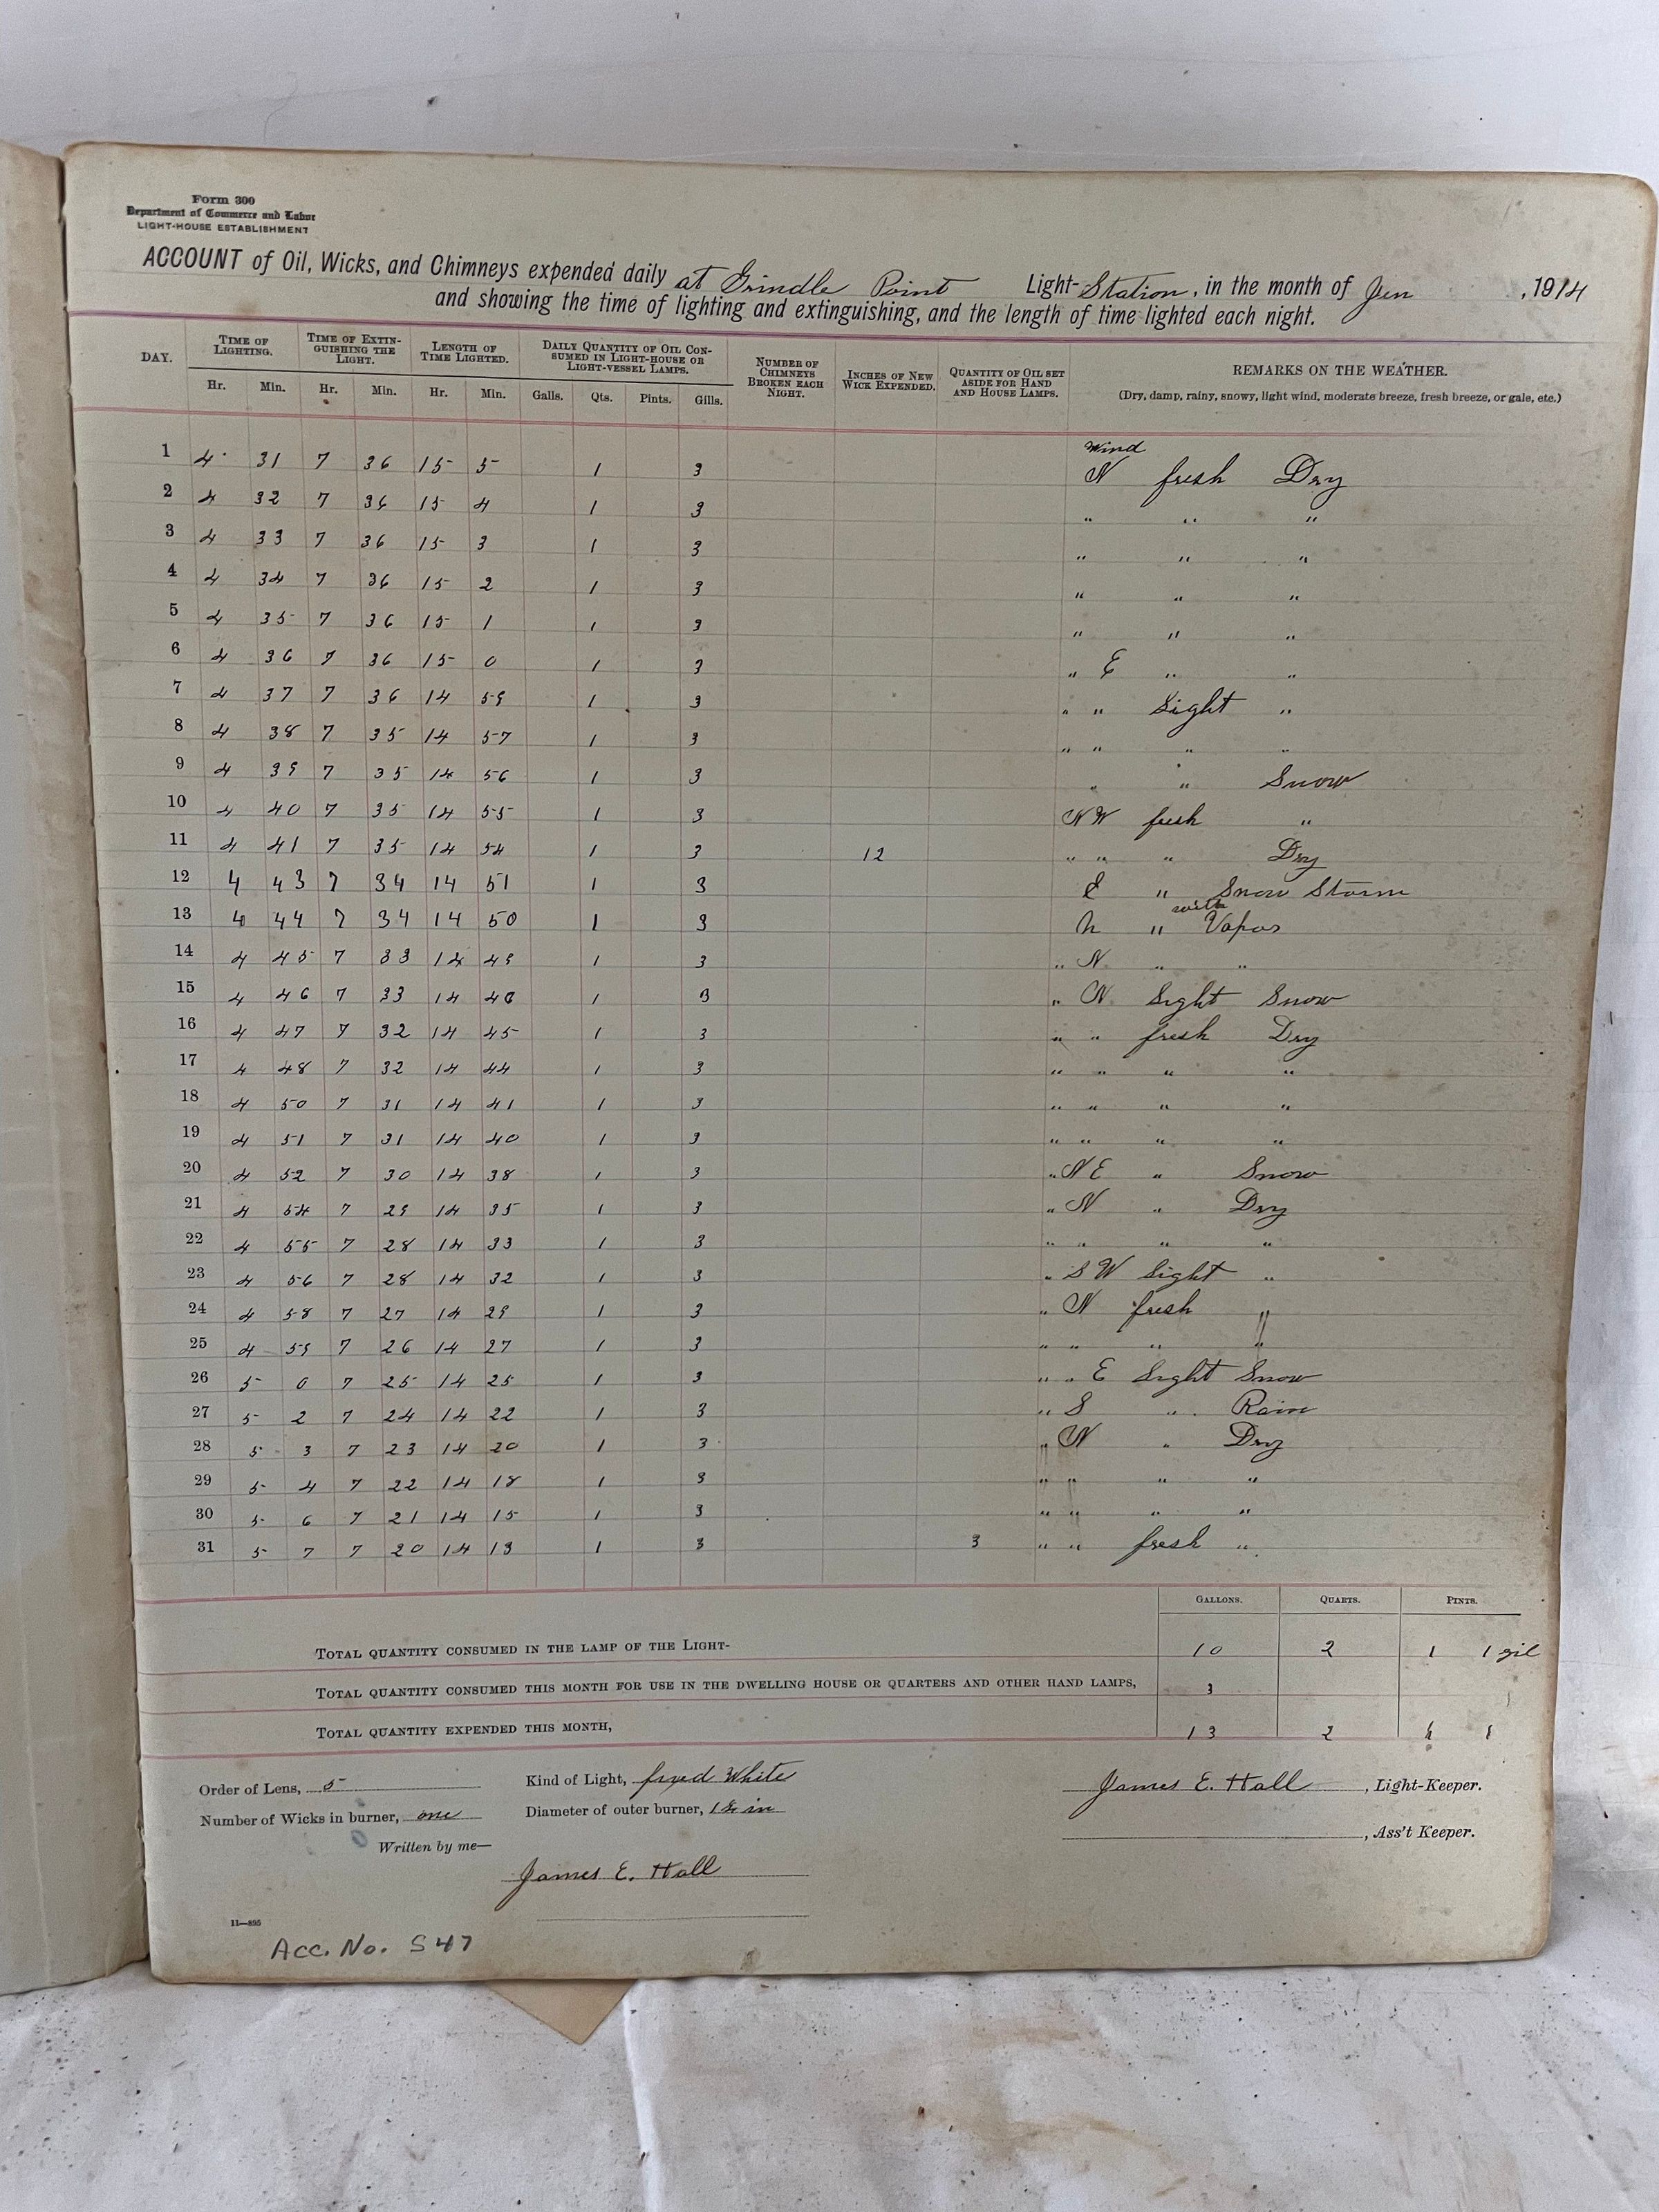 Form 300
Department of Commerce and Labor
LIGHT-HOUSE ESTABLISHMENT
ACCOUNT of Oil, Wicks, and Chimneys expended daily at Grindle Point Light-Station, in the month of Jan, 1914
and showing the time of lighting and extinguishing, and the length of time lighted each night.
DAY. TIME OF LIGHTING. TIME OF EXTINGUISHING THE LIGHT. LENGTH OF TIME LIGHTED. DAILY QUANTITY OF OIL CONSUMED IN LIGHT-HOUSE OR LIGHT-VESSEL LAMPS. NUMBER OF CHIMNEYS BROKEN EACH NIGHT. INCHES OF NEW WICK EXPENDED. QUANTITY OF OIL SET ASIDE FOR HAND AND HOUSE LAMPS. REMARKS ON THE WEATHER.
Hr. Min. Hr. Min. Hr. Min. Galls. Qts. Pints. Gills. (Dry, damp, rainy, snowy, light wind, moderate breeze, fresh breeze, or gale, etc.)
Wind
1 4 31 7 36 15 5 1 3 N fresh Dry
2 4 32 7 36 15 4 1 3 " " "
3 4 33 7 36 15 3 1 3 " " "
4 4 34 7 36 15 2 1 3 " " "
5 4 35 7 36 15 1 1 3 " " "
6 4 36 7 36 15 0 1 3 " E " "
7 4 37 7 36 14 59 1 3 " " Light "
8 4 38 7 35 14 57 1 3 " " " "
9 4 39 7 35 14 56 1 3 " " Snow
10 4 40 7 35 14 55 1 3 NW fresh "
11 4 41 7 35 14 54 1 3 12 " " " Dry
12 4 43 7 34 14 51 1 3 E " Snow Storm
13 4 44 7 34 14 50 1 3 N " with Vapor
14 4 45 7 33 14 49 1 3 " N " "
15 4 46 7 33 14 48 1 3 " N Light Snow
16 4 47 7 32 14 45 1 3 " " fresh Dry
17 4 48 7 32 14 44 1 3 " " " "
18 4 50 7 31 14 41 1 3 " " " "
19 4 51 7 31 14 40 1 3 " " " "
20 4 52 7 30 14 38 1 3 " N E " Snow
21 4 54 7 29 14 35 1 3 " N " Dry
22 4 55 7 28 14 33 1 3 " " " "
23 4 56 7 28 14 32 1 3 " S W Light "
24 4 58 7 27 14 29 1 3 " N fresh "
25 4 59 7 26 14 27 1 3 " " " "
26 5 0 7 25 14 25 1 3 " " E Light Snow
27 5 2 7 24 14 22 1 3 " S " Rain
28 5 3 7 23 14 20 1 3 " N " Dry
29 5 4 7 22 14 18 1 3 " " " "
30 5 6 7 21 14 15 1 3 " " " "
31 5 7 7 20 14 13 1 3 3 " " fresh "
GALLONS. QUARTS. PINTS.
TOTAL QUANTITY CONSUMED IN THE LAMP OF THE LIGHT- 10 2 1 1 gil
TOTAL QUANTITY CONSUMED THIS MONTH FOR USE IN THE DWELLING HOUSE OR QUARTERS AND OTHER HAND LAMPS, 3
TOTAL QUANTITY EXPENDED THIS MONTH, 13 2 1 1
Order of Lens, 5 Kind of Light, fixed White James E. Hall, Light-Keeper.
Number of Wicks in burner, one Diameter of outer burner, in , Ass't Keeper.
Written by me—
James E. Hall
11—895
Acc. No. S47